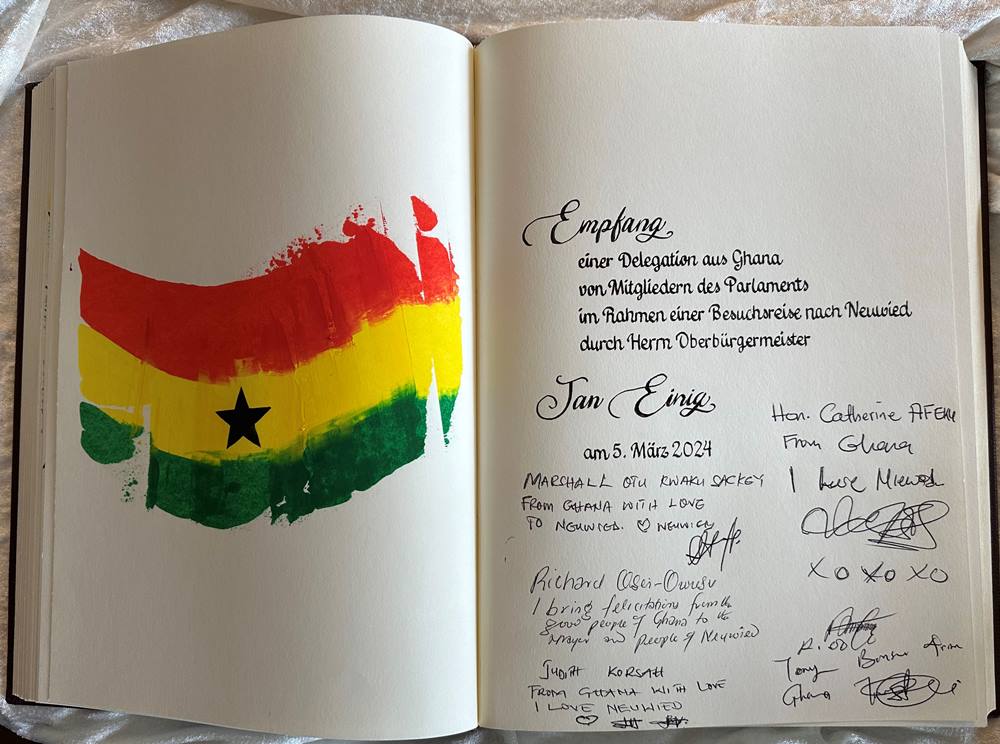 Empfang
einer Delegation aus Ghana
von Mitgliedern des Parlaments
im Rahmen einer Besuchsreise nach Neuwied
durch Herrn Oberbürgermeister
Jan Einig
am 5. März 2024
MARSHALL OTU KWAKU SACKEY
FROM GHANA WITH LOVE
TO NEUWIED. ♡ NEUWIED
Richard Osei-Owusu
I bring felicitations from the
good people of Ghana to the
mayor and people of Neuwied
JUDITH KORSAH
FROM GHANA WITH LOVE
I LOVE NEUWIED
♡
Hon. Catherine AFEKU
From Ghana
I love
XO XO XO
Tony Bonsu
Ghana